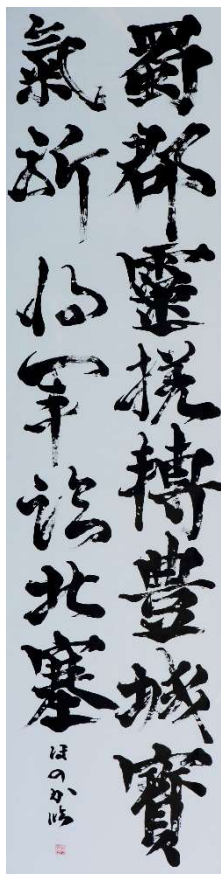 蜀郡靈槎轉豊城寶
氣新将軍臨北塞
ほのか臨